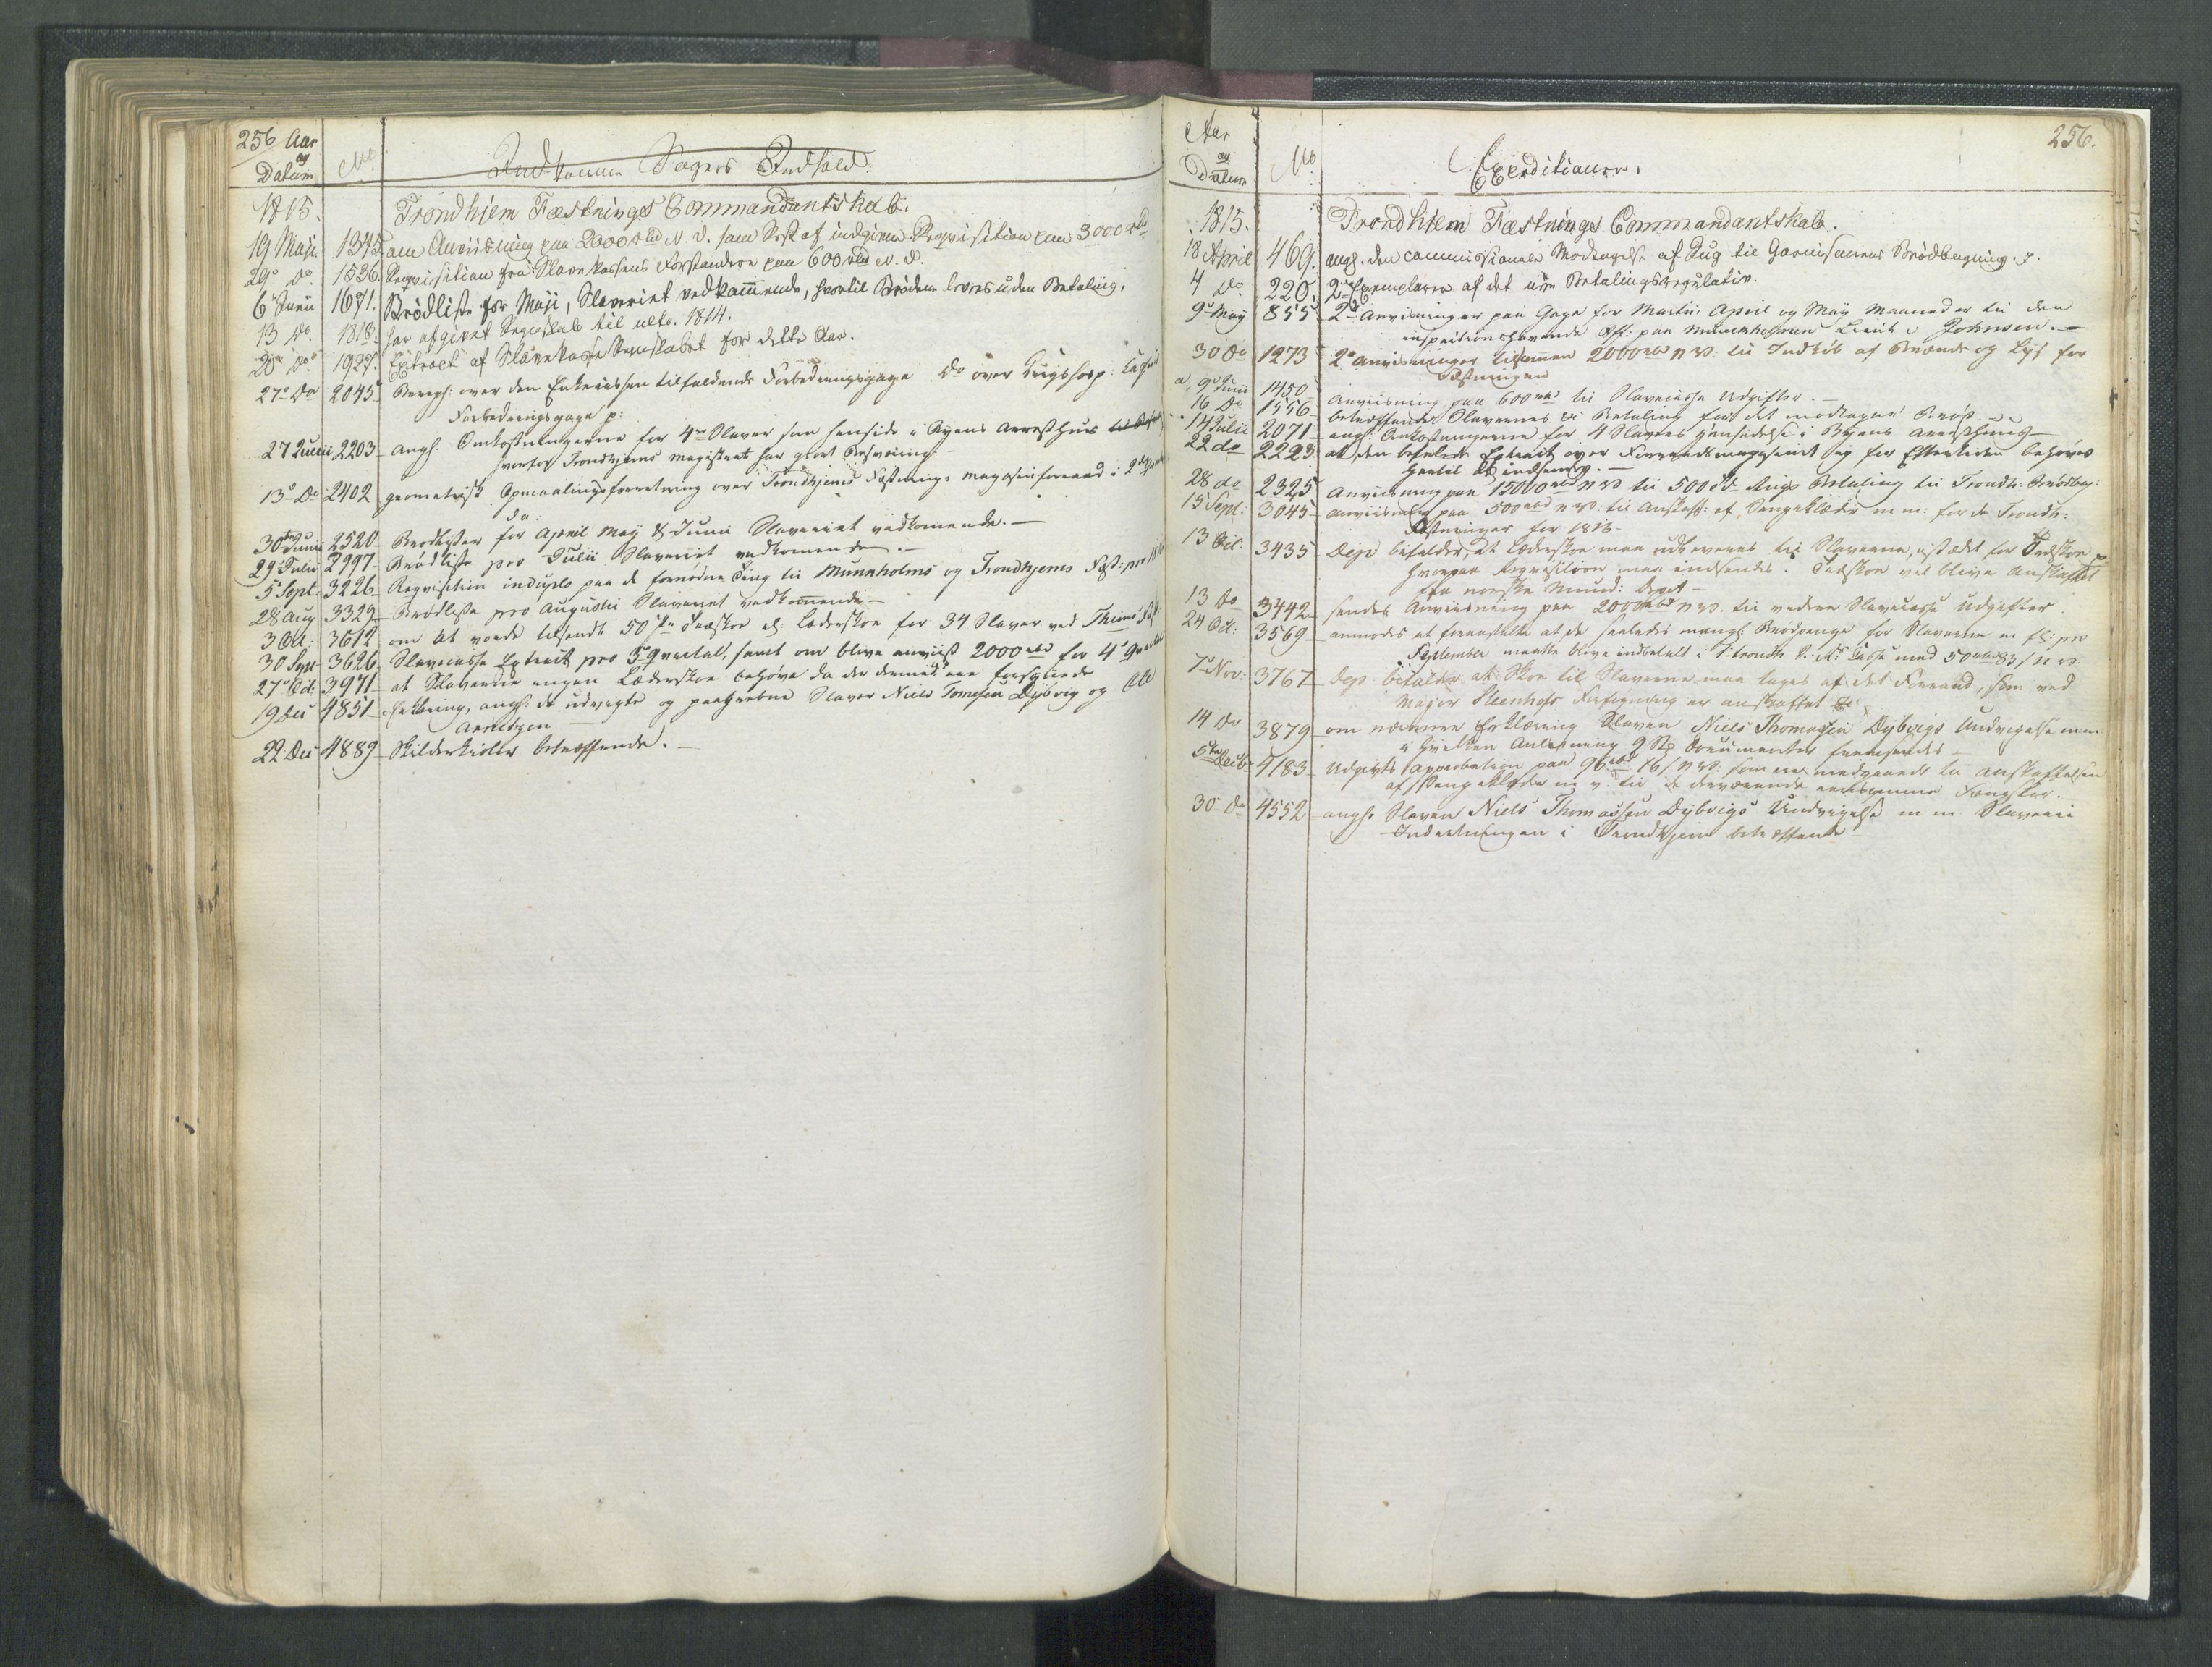 256 Aar
og
Datum
No
Indkomne Sagers Indhold.
1815.
Trondhjem Fæstnings Commandantskab.
19 Maji. 1345. om Anviisning paa 2000 rbd N. V. som Rest af indgiven Reqvisition paa 3000 rbd
29 do. 1536. Reqvisition fra Slavekassens Forstandere paa 600 rbd N. V.
6 Junii 1671. Brødliste for Maji, Slaveriet vedkommende, hvortil Brødene leveres uden Betaling.
13 do. 1818. har afgivet Regnskab til ulto. 1814.
20 do. 1927. Extract af Slavekasse Regnskabet for dette Aar.
27 do 2045 Beregn: over den Enkekassen tilfaldende Forbedringsgage do over Krigshosp:
Forbedringsgage p:
27 Junii 2203 angh. Omkostningerne for 4re Slaver som hensidde i Byens Arresthuus
hvorfor Trondhjems Magistrat har giort Reqvisition
13 do 2402 geometrisk Opmaalingsforretning over Trondhjems Fæstnings Magasinforraad i
do.
30 Junii 2520 Brødlister for April May & Junii Slaveriet vedkommende.—
29 Julii 2997 Brødliste pro Julii Slaveriet vedkommende.—
5 Sept: 3226 Reqvisition induplo paa de fornødne Ting til Munkholms og Trondhjems Fæst: pro
28 Aug 3329 Brødliste pro Augusti Slaveriet vedkommende—
3 Oct: 3612 om at vorde tilsendt 50 Par Træskoe el. Læderskoe for 34 Slaver ved
30 Sept 3626 Slavecasse Extract pro 3 Qvartal, samt om blive anviist 2000 rbd for 4 Qvartal
27 Oct: 3971 at Slaverne ingen Læderskoe behøve da de dermed ere forsynede
19 Dec 4851 Erklæring, angh: de undvigte og paagrebne Slaver Niels Tomesen Dybvig og
Arentzen—
22 Dec 4889 Skilderkioler betræffende.—
Aar
og
Datum
No
Expeditioner.
256.
1815.
Trondhiem Fæstnings Commandantskab.
18 April 469. angh. den commissionale Modtagelse af Rug til Garnisonens Brødbagning.
4 do. 220. 2 Exemplarer af det nye Betalingsregulativ.
9 May 855 2 Anvisninger paa Gage for Martii April og May Maaneder til den
inspectionshavende Off: paa Munckholmen Lieut: Johnsen.—
30 do 1273 2 Anvisninger tilsammen 2000 rbd N V. til Indkiøb af Brænde og Lys for
Fæstningen
9 Junii 1450 Anviisning paa 600 rbd til Slavecasse Udgifter.—
16 do 1556 betræffende Slavernes Betaling for det modtagne Brød.
14 Julii 2071 angh: Omkostningerne for 4 Slavers hensiddelse i Byens Arresthuus—
22 do 2223 at den befalede Extract over Forraadsmagasinet ej for Eftertiden behøves
hertil at indsendes.—
28 do 2325 Anviisning paa 15000 rbd N V. til 500 Rugs Betaling til Trondh: Brødbag:
15 Sept: 3045 Anviisning paa 500 rbd N V. til Anskaff: af Sengeklæder m m: for de Trondh:
Fæstninger for 1815—
13 Oct: 3435 Dep befalder, at Læderskoe maa udleveres til Slaverne, istædet for Træskoe
hvorpaa Reqvisition maa indsendes. Træskoe vil blive anskaffet
fra norske Mund: Depot—
13 do 3442 sendes Anviisning paa 2000 rbd N V. til videre Slavecasse Udgifter.
24 Oct: 3569 anmodes at foranstalte at de saaledes mangl: Brødpenge for Slaverne m fl: pro
September maatte blive indbetalt i Trondh Casse med 50 rbd 83/ N V.
7 Nov: 3767 Dep: befaler at Skoe til Slaverne maa tages af det Forraad, som ved
Major Steenhofs Forføining er anskaffet
14 do 3879 om nærmere Erklæring Slaven Niels Thomassen Dybvigs Undvigelse m m
i hvilken Anledning 9 Stk Documenter fremsendes—
5 Decb 4183 Udgivts Approbation paa 96 rbd 16/ N V. som ere medgaaede til Anskaffelsen
af Sengeklæder m v. til de derværende Fanger.
30 do 4552 angh: Slaven Niels Thomassen Dybvigs Undvigelse m m Slaverie
Indretningen i Trondhjem betræffende—